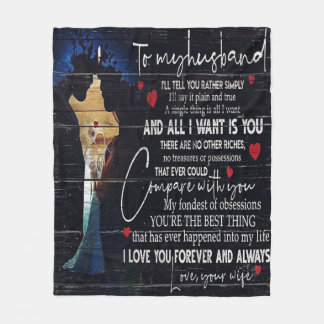 To my husband
I'LL TELL YOU RATHER SIMPLY
I'll say it plain and true
A single thing is all I want
AND ALL I WANT IS YOU
THERE ARE NO OTHER RICHES,
no treasures or possessions
THAT EVER COULD
Compare with you
My fondest of obsessions
YOU'RE THE BEST THING
that has ever happened into my life
I LOVE YOU FOREVER AND ALWAYS
Love, your wife